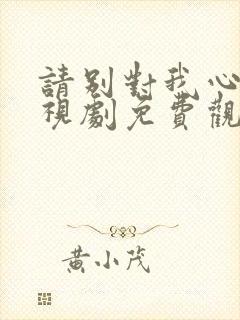 請別對我心
視劇免費觀
黃小茂